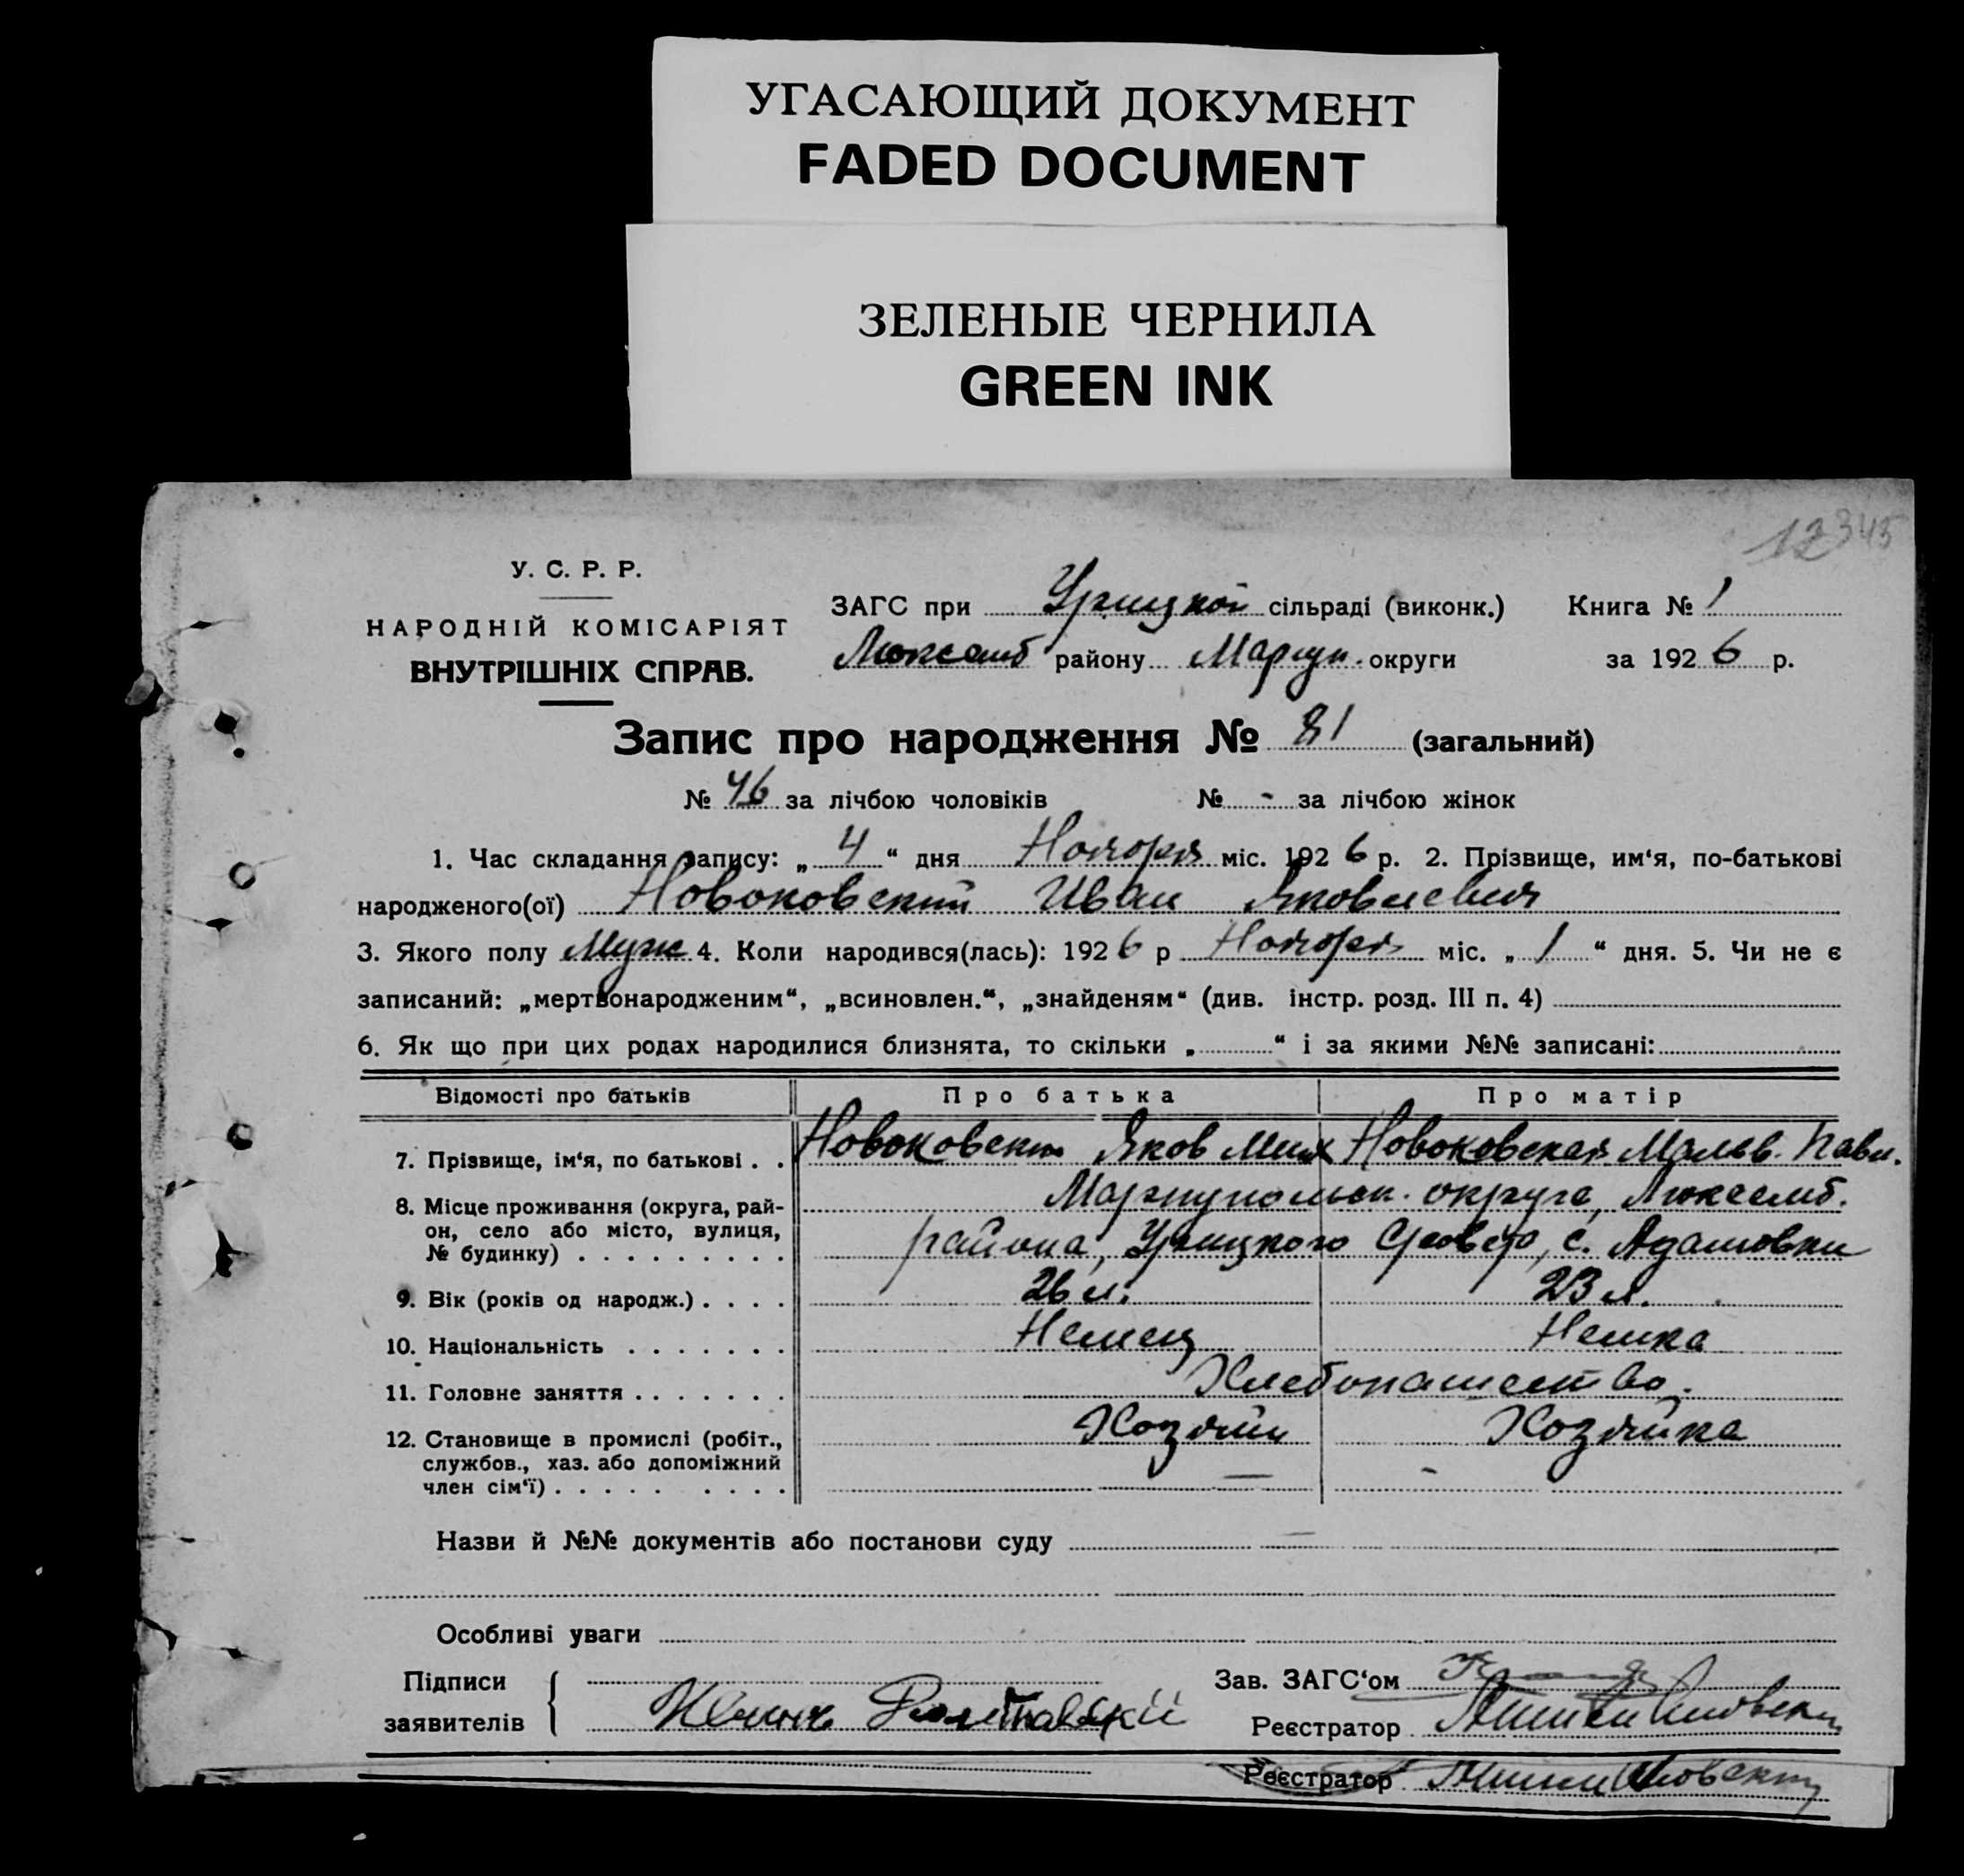 УГАСАЮЩИЙ ДОКУМЕНТ
FADED DOCUMENT
ЗЕЛЕНЫЕ ЧЕРНИЛА
GREEN INK
12 345
У. С. Р. Р.
НАРОДНІЙ КОМІСАРІЯТ
ВНУТРІШНІХ СПРАВ.
ЗАГС при Урицкой сільраді (виконк.) Книга № 1
Люксемб району Мариуп. округи за 1926 р.
Запис про народження № 81 (загальний)
№ 46 за лічбою чоловіків № - за лічбою жінок
1. Час складання запису: „ 4 “ дня Ноября міс. 1926 р. 2. Прізвище, им‘я, по-батькові
народженого(ої) Новоковский Иван Яковлевич
3. Якого полу Муж 4. Коли народився(лась): 1926 р Ноября міс. „ 1 “ дня. 5. Чи не є
записаний: „мертвонародженим“, „всиновлен.“, „знайденям“ (див. інстр. розд. III п. 4)
6. Як що при цих родах народилися близнята, то скільки „ “ і за якими №№ записані:
Відомості про батьків Про батька Про матір
7. Прізвище, ім‘я, по батькові . . Новоковский Яков Мих Новоковская Мальв. Павл.
8. Місце проживання (округа, рай- Мариупольск. округа, Люксемб.
он, село або місто, вулиця,
№ будинку) . . . . . . . . . района, Урицкого с/совета, с. Адамовки
9. Вік (років од народж.) . . . . 26 л. 23 л.
10. Національність . . . . . . . Немец Немка
11. Головне заняття . . . . . . . Хлебопашество.
12. Становище в промислі (робіт., Хозяин Хозяйка
службов., хаз. або допоміжний
член сім‘ї) . . . . . . . . . — -
Назви й №№ документів або постанови суду —
Особливі уваги
Підписи Зав. ЗАГС‘ом
заявителів Реєстратор
Реєстратор